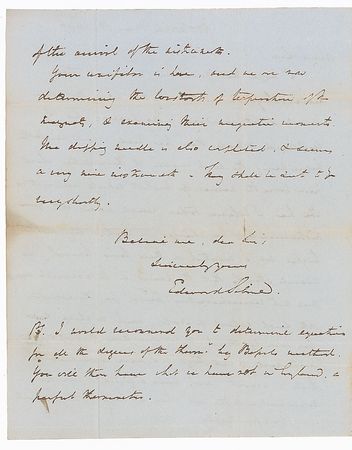 after the arrival of the instruments.
Your unifilar is here, and we are now
determining the constants of temperature of the
magnets, & examining their magnetic moments
The dipping needle is also completed, & seems
a very nice instrument - They shall be sent to you
very shortly.
Believe me, dear Sir,
Sincerely yours
Edward Sabine.
PS. I would recommend you to determine equation
for all the degrees of the therm^r by Bessel's method.
You will then have what we have not in England, a
perfect thermometer.